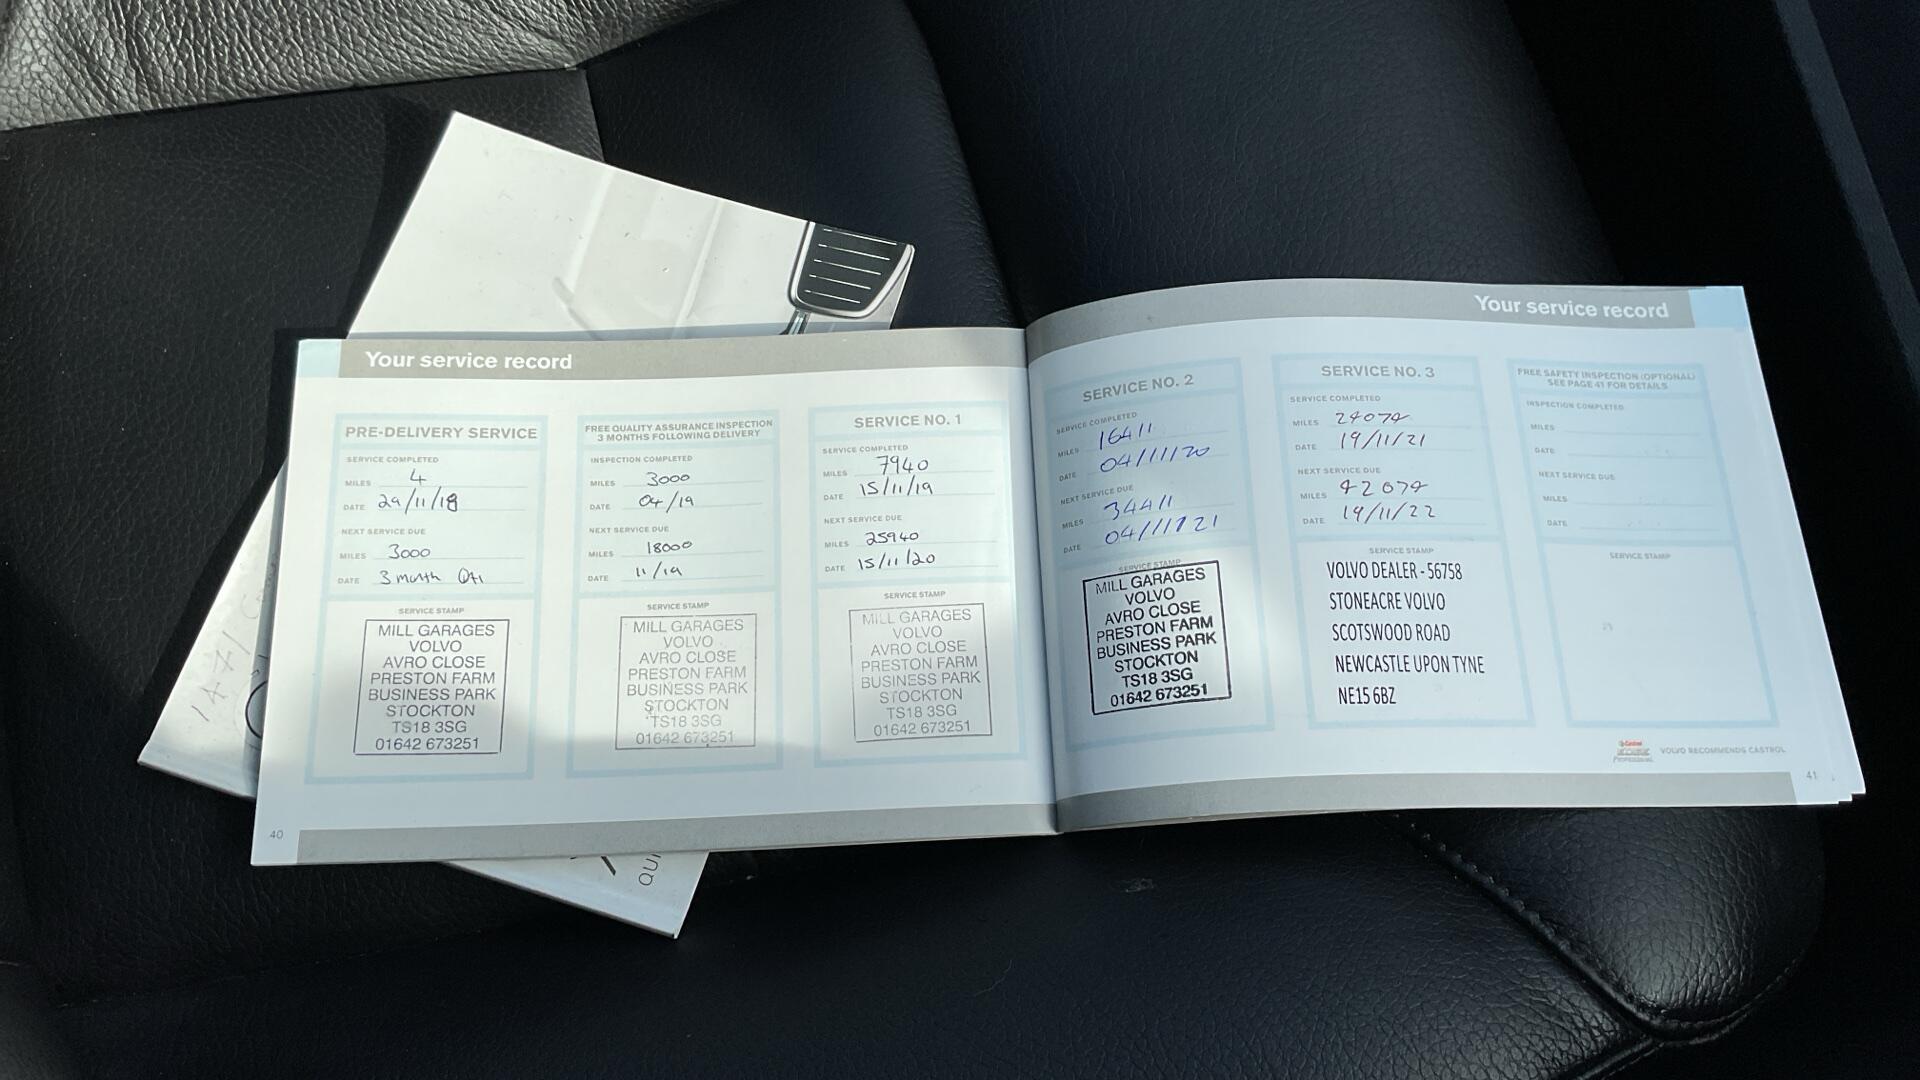 Your service record
PRE-DELIVERY SERVICE
SERVICE COMPLETED
MILES 4
DATE 29/11/18
NEXT SERVICE DUE
MILES 3000
DATE 3 month QAI
SERVICE STAMP
MILL GARAGES
VOLVO
AVRO CLOSE
PRESTON FARM
BUSINESS PARK
STOCKTON
TS18 3SG
01642 673251
FREE QUALITY ASSURANCE INSPECTION
3 MONTHS FOLLOWING DELIVERY
INSPECTION COMPLETED
MILES 3000
DATE 04/19
NEXT SERVICE DUE
MILES 18000
DATE 11/19
SERVICE STAMP
MILL GARAGES
VOLVO
AVRO CLOSE
PRESTON FARM
BUSINESS PARK
STOCKTON
TS18 3SG
01642 673251
SERVICE NO. 1
SERVICE COMPLETED
MILES 7940
DATE 15/11/19
NEXT SERVICE DUE
MILES 25940
DATE 15/11/20
SERVICE STAMP
MILL GARAGES
VOLVO
AVRO CLOSE
PRESTON FARM
BUSINESS PARK
STOCKTON
TS18 3SG
01642 673251
40
Your service record
SERVICE NO. 2
SERVICE COMPLETED
MILES 16411
DATE 04/11/20
NEXT SERVICE DUE
MILES 34411
DATE 04/11/21
SERVICE STAMP
MILL GARAGES
VOLVO
AVRO CLOSE
PRESTON FARM
BUSINESS PARK
STOCKTON
TS18 3SG
01642 673251
SERVICE NO. 3
SERVICE COMPLETED
MILES 24074
DATE 19/11/21
NEXT SERVICE DUE
MILES 42074
DATE 19/11/22
SERVICE STAMP
VOLVO DEALER - 56758
STONEACRE VOLVO
SCOTSWOOD ROAD
NEWCASTLE UPON TYNE
NE15 6BZ
FREE SAFETY INSPECTION (OPTIONAL)
SEE PAGE 41 FOR DETAILS
INSPECTION COMPLETED
MILES
DATE
NEXT SERVICE DUE
MILES
DATE
SERVICE STAMP
Castrol
Professional
VOLVO RECOMMENDS CASTROL
41
QUI